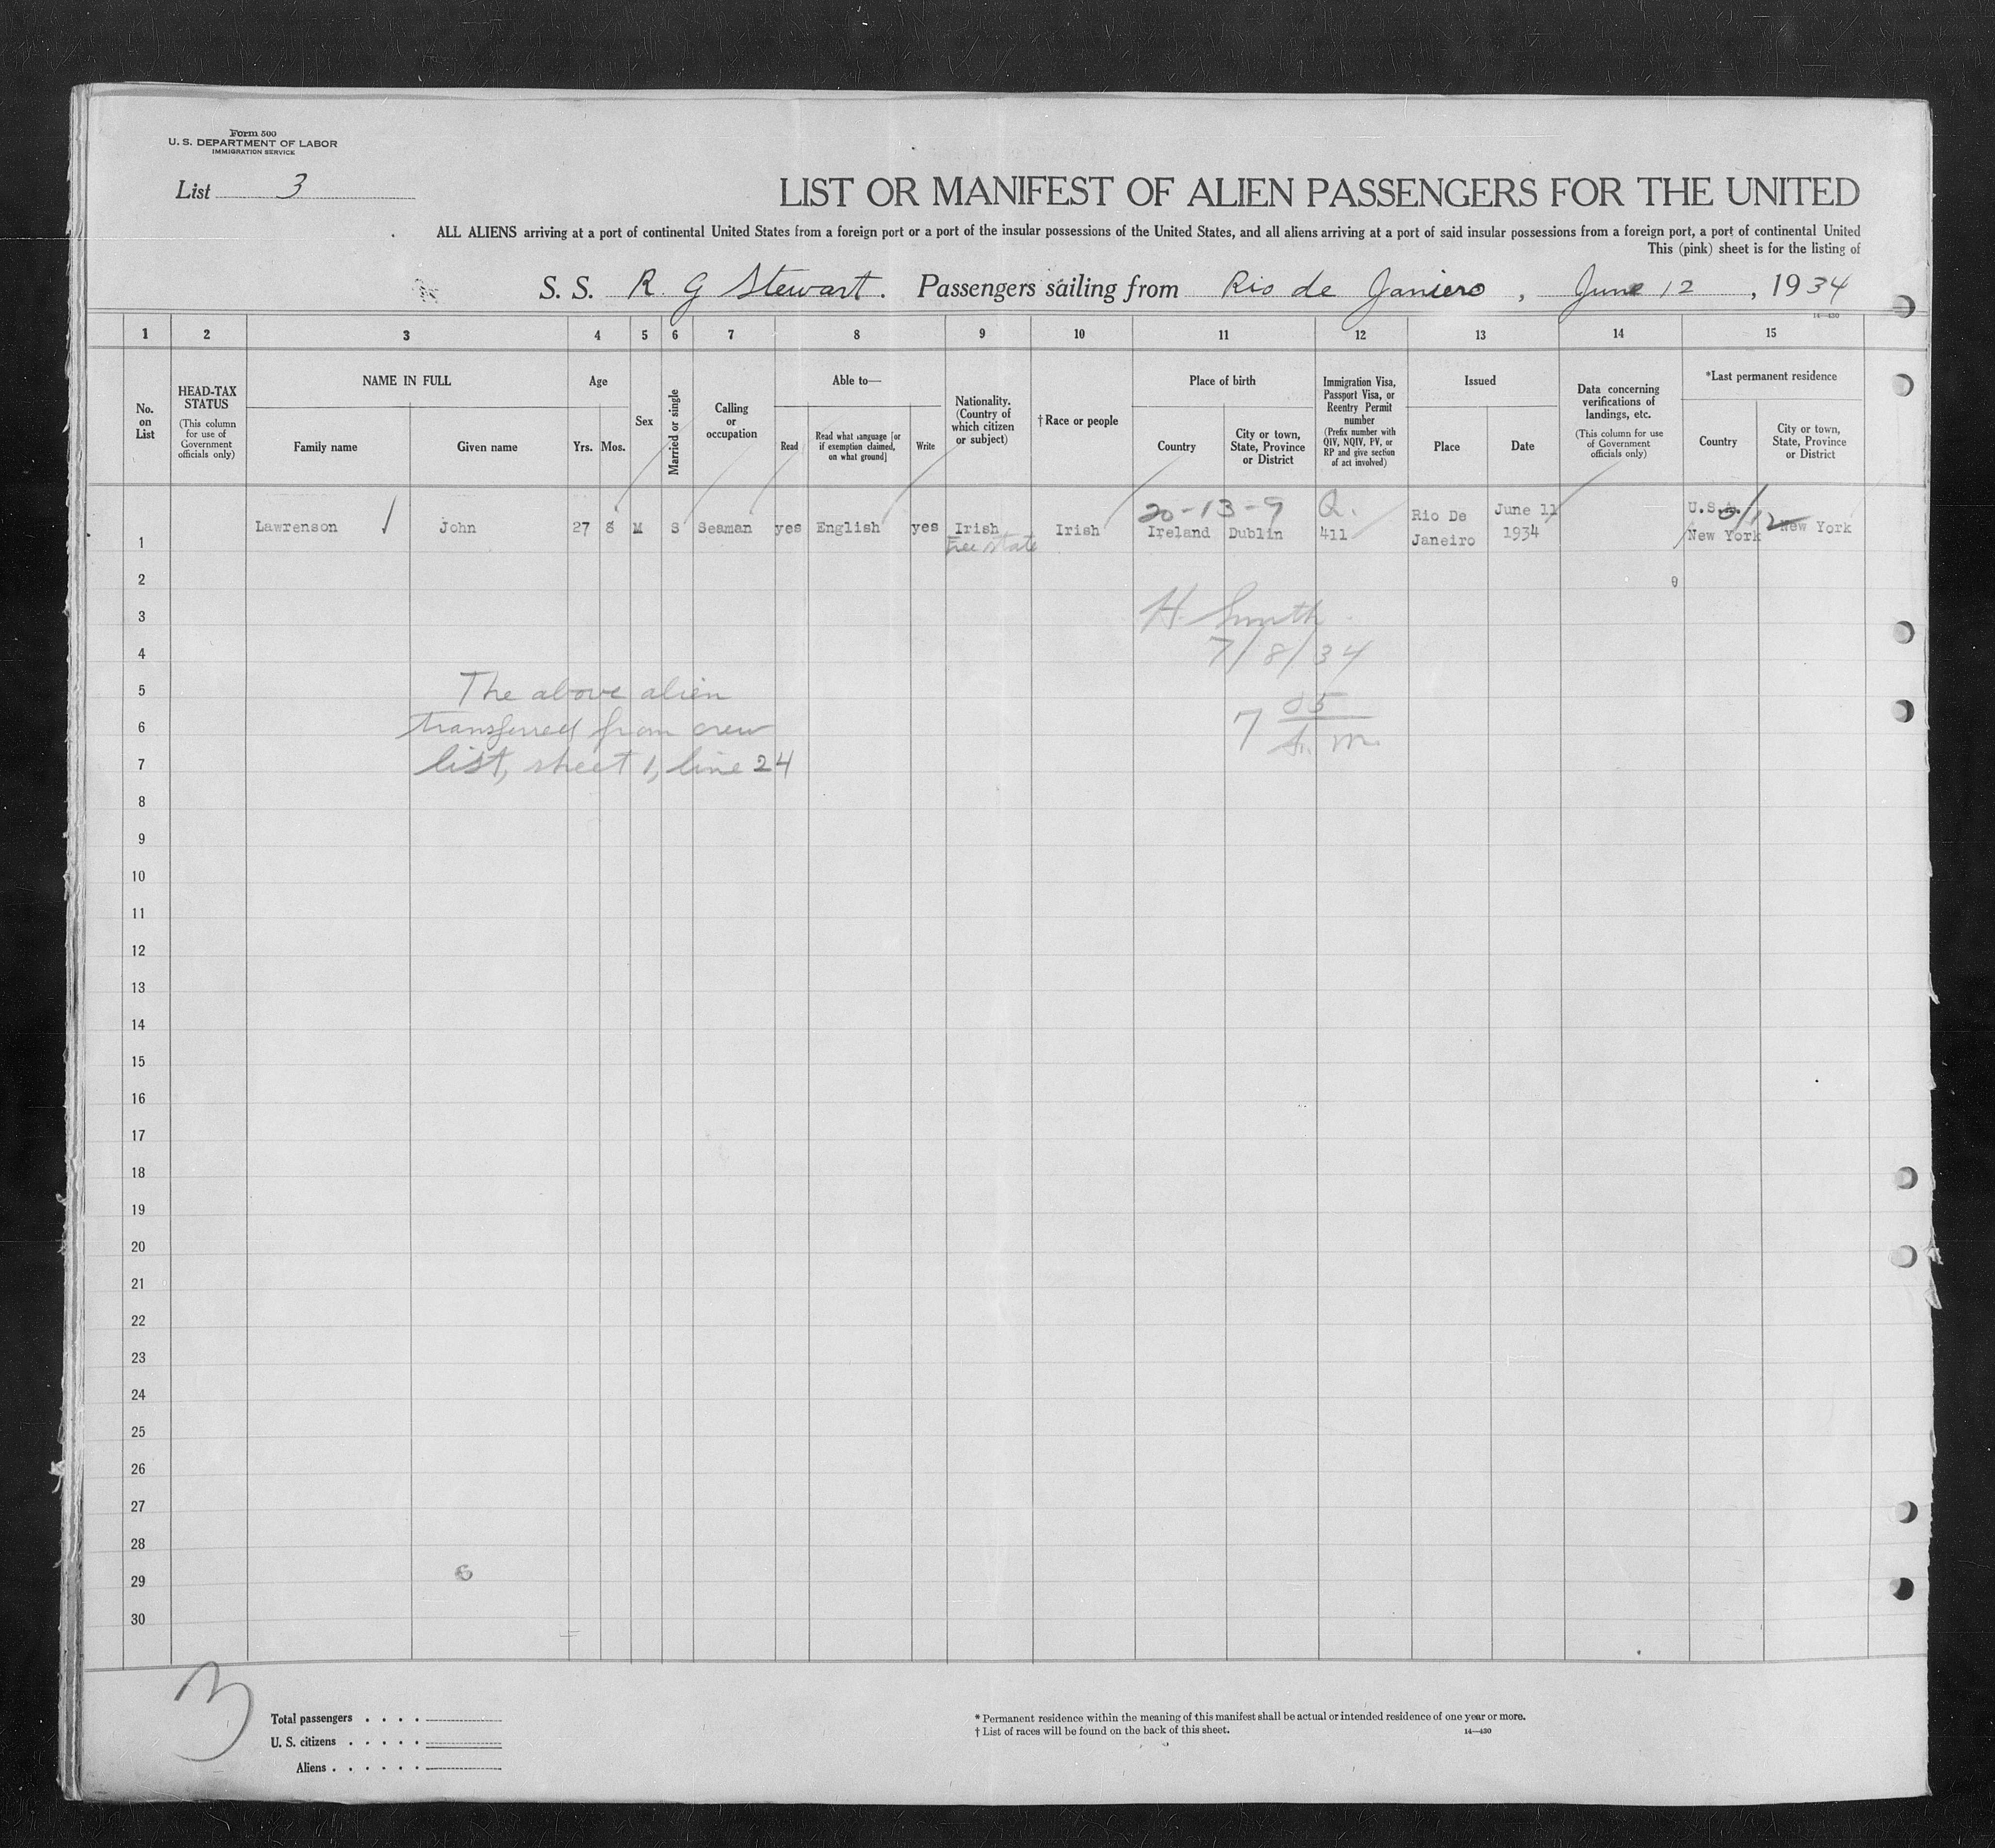 Form 500
U. S. DEPARTMENT OF LABOR
IMMIGRATION SERVICE
List 3
LIST OR MANIFEST OF ALIEN PASSENGERS FOR THE UNITED
ALL ALIENS arriving at a port of continental United States from a foreign port or a port of the insular possessions of the United States, and all aliens arriving at a port of said insular possessions from a foreign port, a port of continental United
This (pink) sheet is for the listing of
S. S. R. G Stewart. Passengers sailing from Rio de Janiero, June 12, 1934
14—430
1 2 3 4 5 6 7 8 9 10 11 12 13 14 15
No. on List
HEAD-TAX STATUS
(This column for use of Government officials only)
NAME IN FULL
Family name
Given name
Age
Yrs. Mos.
Sex
Married or single
Calling or occupation
Able to—
Read
Read what language [or if exemption claimed, on what ground]
Write
Nationality. (Country of which citizen or subject)
† Race or people
Place of birth
Country
City or town, State, Province or District
Immigration Visa, Passport Visa, or Reentry Permit number
(Prefix number with QIV, NQIV, PV, or RP and give section of act involved)
Issued
Place
Date
Data concerning verifications of landings, etc.
(This column for use of Government officials only)
*Last permanent residence
Country
City or town, State, Province or District
20-13-9 Q. June 11 U.S.A.
1 Lawrenson John 27 8 M S Seaman yes English yes Irish Irish Ireland Dublin 411 Rio De Janeiro 1934 New York New York
Free State
2
3 H. Smith
4 7/8/34
5 The above alien
6 transferred from crew
7 list, sheet 1, line 24
7 05
8
9
10
11
12
13
14
15
16
17
18
19
20
21
22
23
24
25
26
27
28
29
30
3
Total passengers
U. S. citizens
Aliens
* Permanent residence within the meaning of this manifest shall be actual or intended residence of one year or more.
† List of races will be found on the back of this sheet.
14—430